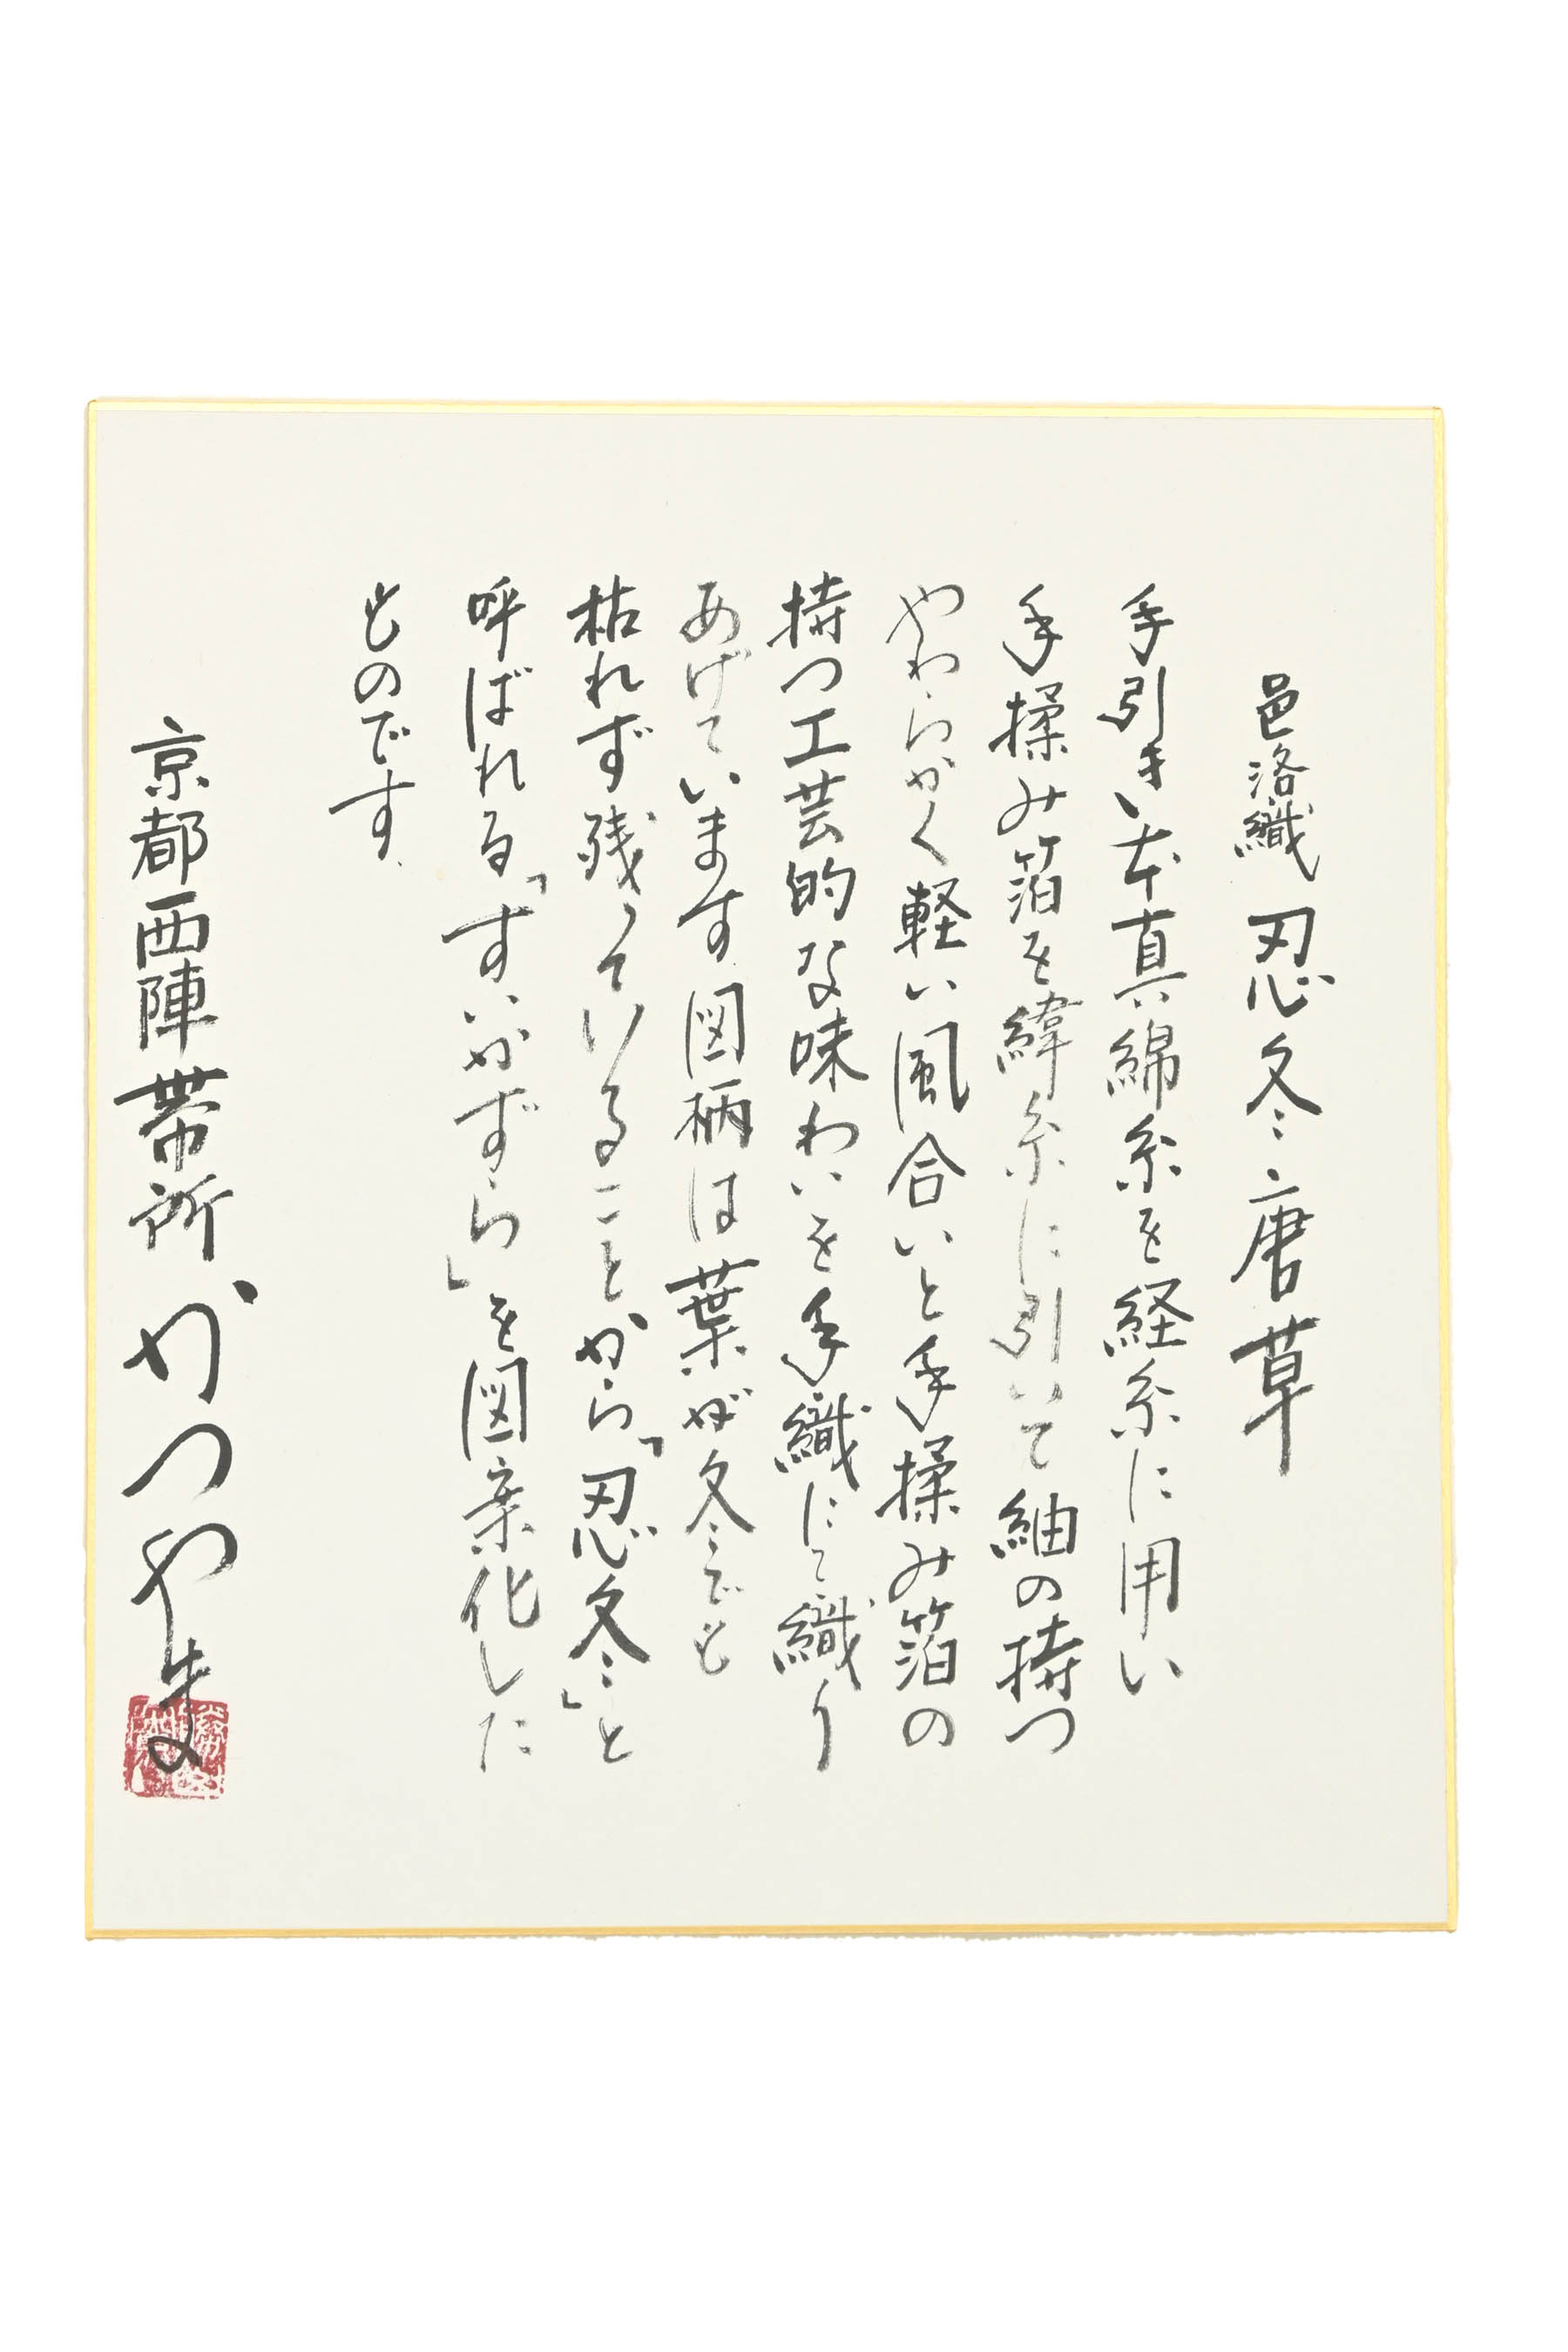 邑洛織 忍冬唐草
手引き本真綿糸を経糸に用い
手揉み箔を緯糸に引いて紬の持つ
やわらかく軽い風合いと手揉み箔の
持つ工芸的な味わいを手織にて織り
あげています 図柄は葉が冬でも
枯れず残っていることから「忍冬」と
呼ばれる「すいかずら」を図案化した
ものです
京都西陣帯所かつやま